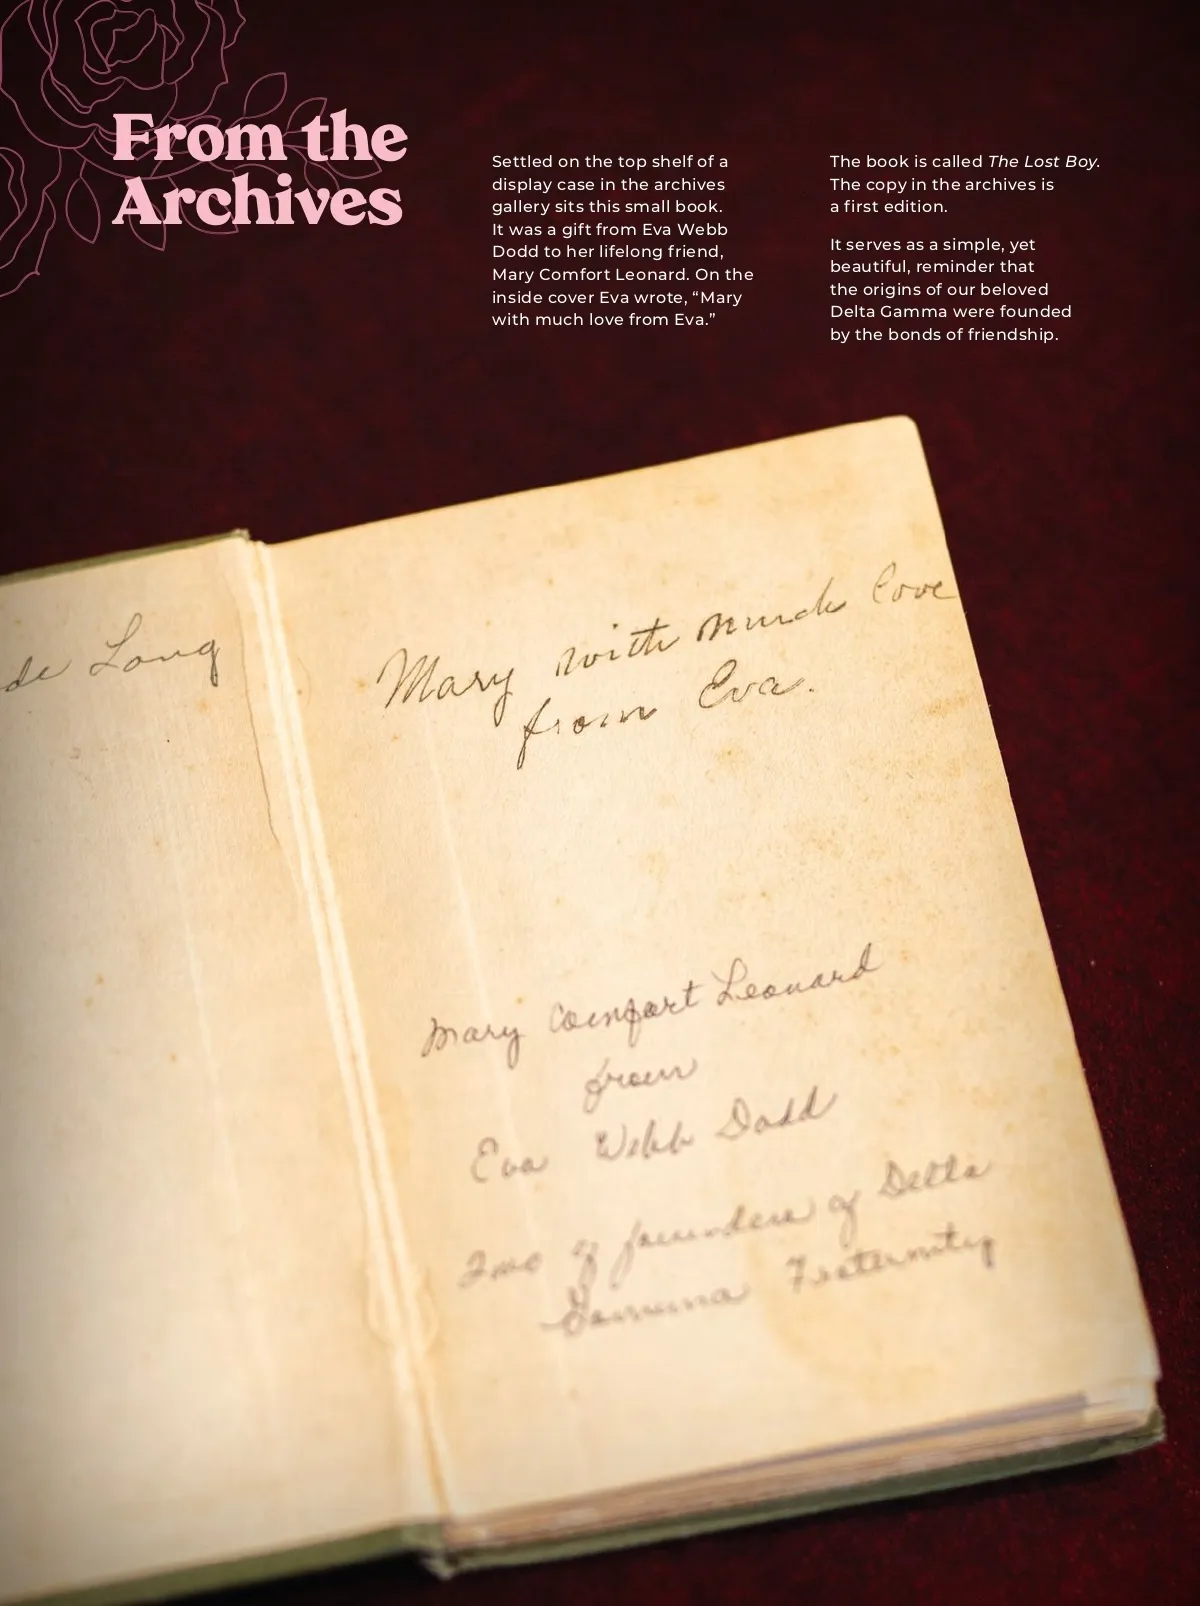 From the
Archives
Settled on the top shelf of a
display case in the archives
gallery sits this small book.
It was a gift from Eva Webb
Dodd to her lifelong friend,
Mary Comfort Leonard. On the
inside cover Eva wrote, “Mary
with much love from Eva.”
The book is called The Lost Boy.
The copy in the archives is
a first edition.
It serves as a simple, yet
beautiful, reminder that
the origins of our beloved
Delta Gamma were founded
by the bonds of friendship.
de Long
Mary with much love
from Eva.
Mary Comfort Leonard
from
Eva Webb Dodd
Two of founders of Delta
Gamma Fraternity